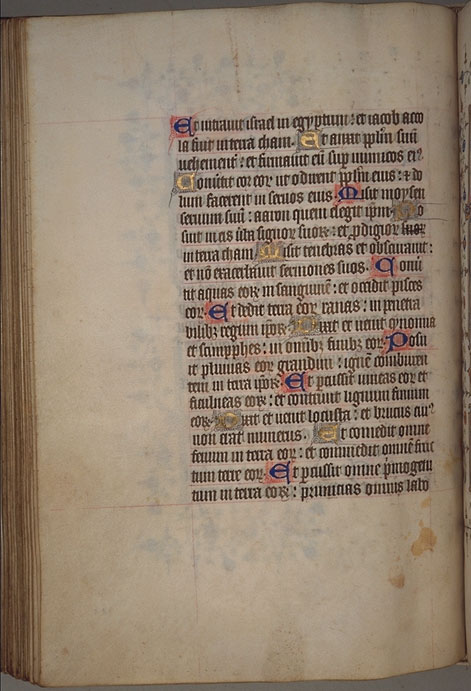 Et intrauit israel in egyptum : et iacob acco
la fuit in terra cham. Et auxit ppl̄m suū
uehement᷑ : et firmauit eū sup inimicos ei᷒
Conūtit cor eor ut odirent ppl̄m eius : ⁊ do
lum facerent in seruos eius. Misit moysen
seruum suū : aaron quem elegit ip̄m. Po
suit in eis ūba signor̄ suoꝝ : et ꝓdigior̄ suoꝝ
in terra cham. Misit tenebras et obscurauit :
et nō exacerbauit sermones suos. Conū
tit aquas eoꝝ in sanguinē : et occidit pisces
eoꝝ. Et dedit terra eoꝝ ranas : in penetra
libꝫ regum ip̄oꝝ. Dixit et uenit cynomia
et sciniphes : in om̄ibꝫ finibꝫ eoꝝ. Posu
it pluuias eoꝝ grandinē : ignē comburen
tem in terra ip̄oꝝ. Et ꝑcussit uineas eoꝝ et
ficulneas eoꝝ : et contriuit lignum finium
eoꝝ. Dixit et uenit locusta : et brucus cui᷒
non erat numerus. Et comedit omne
fenum in terra eoꝝ : et commedit omnē fruc
tum terre eoꝝ. Et ꝑcussit omne p̄mogeni
tum in terra eoꝝ : primicias omnis labo